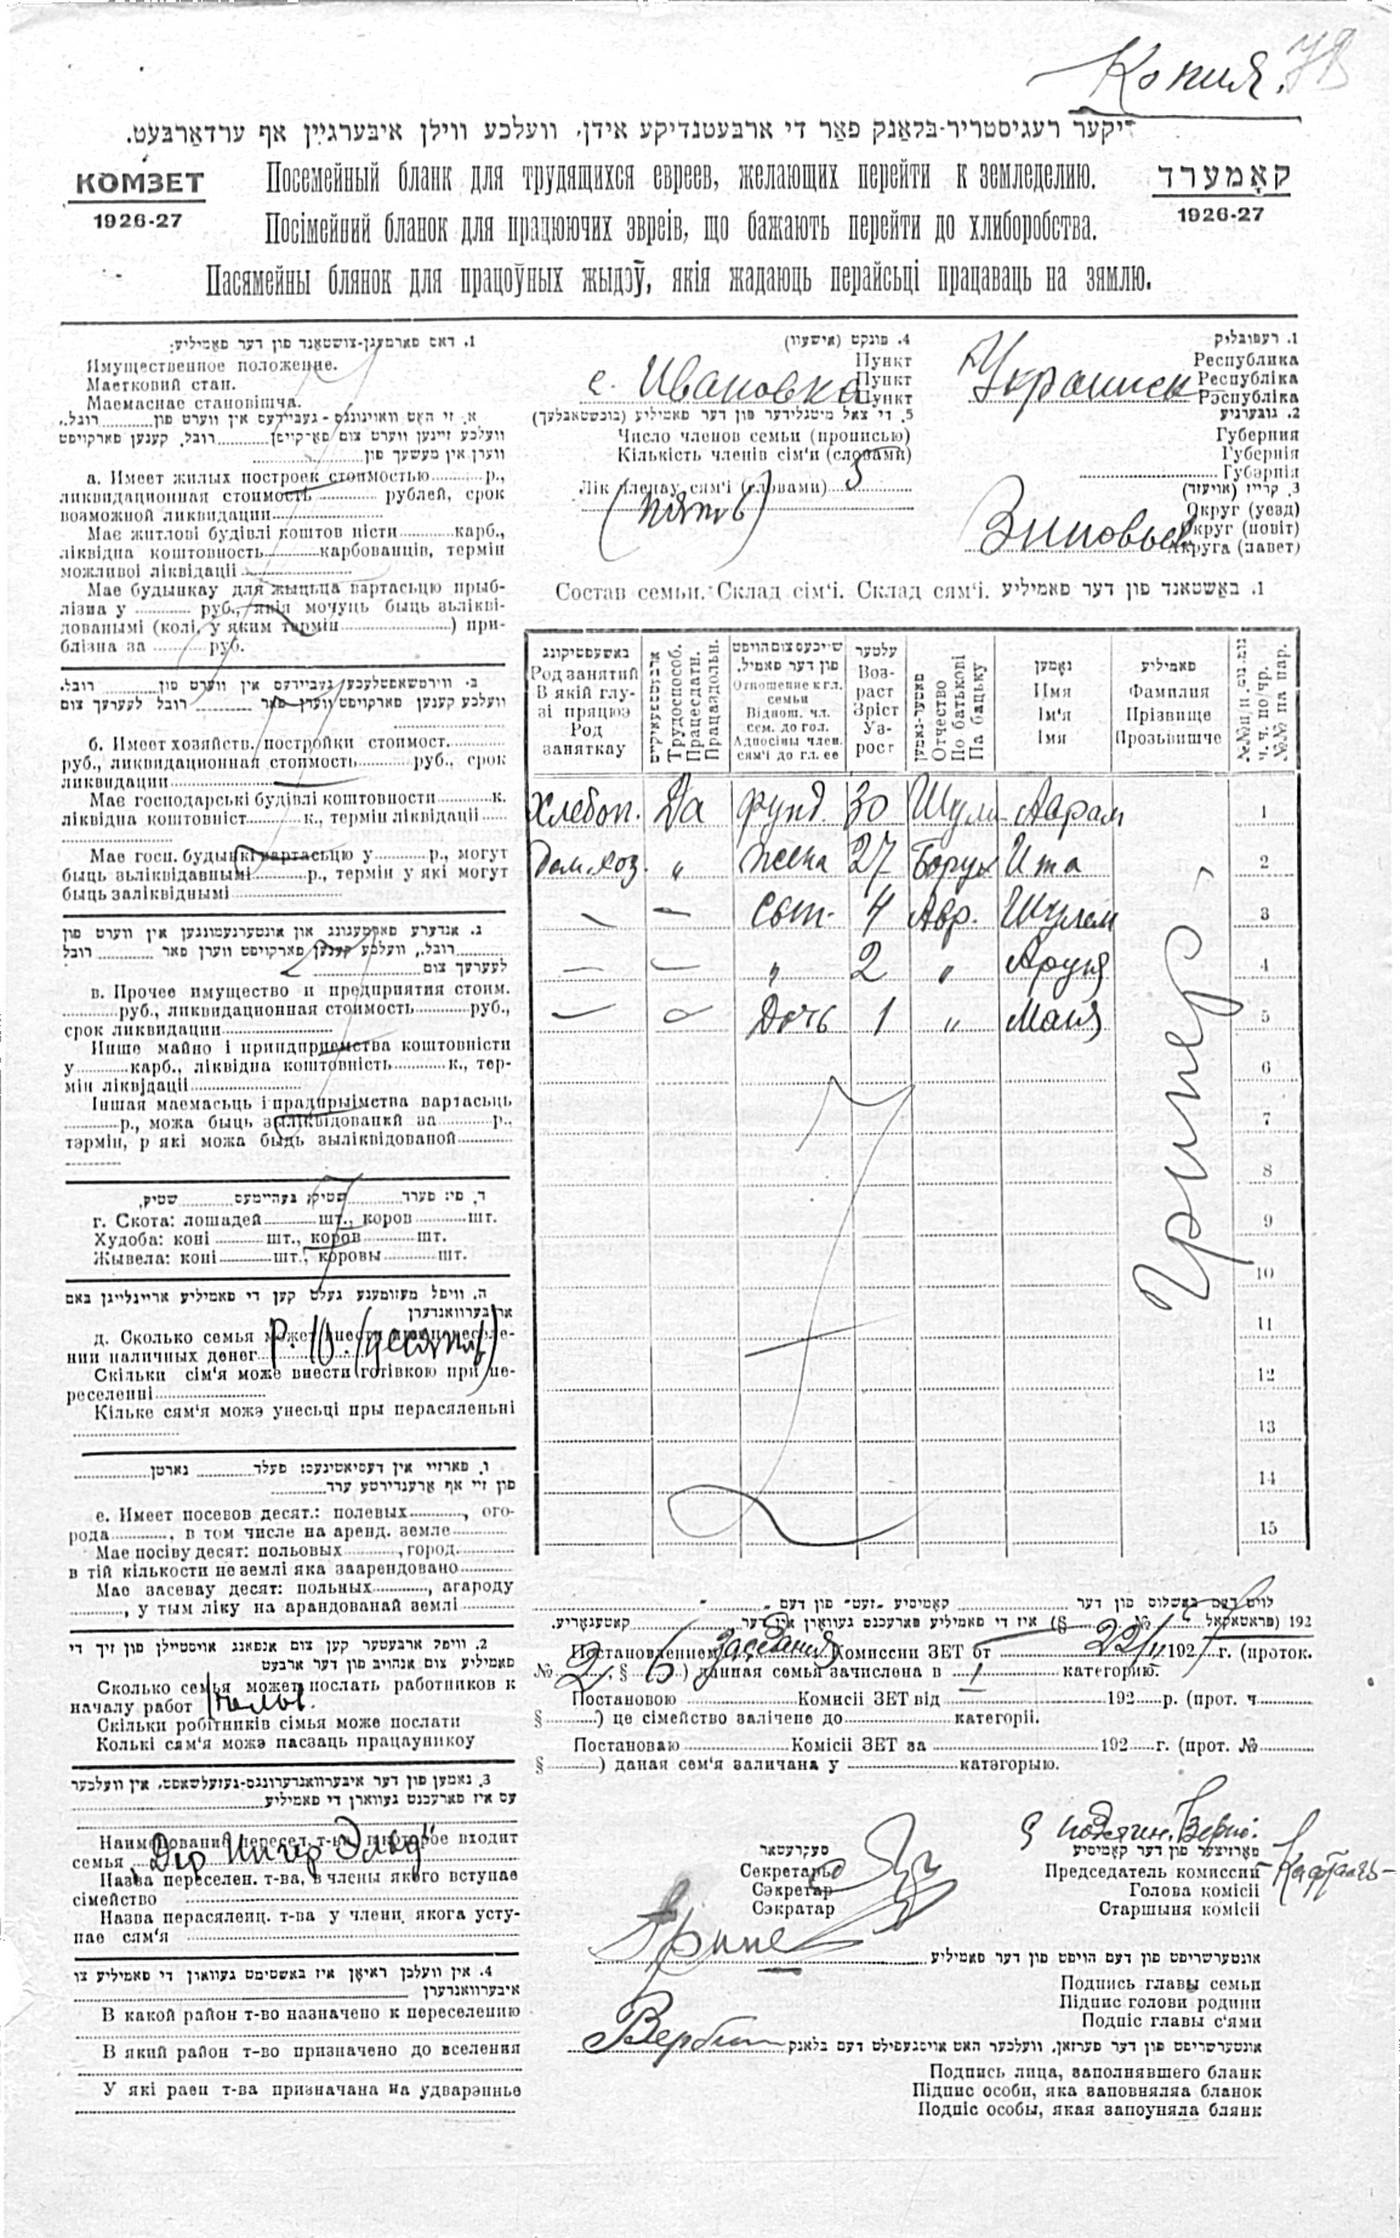 Копия. 78
דיקער רעגיסטריר-בלאַנק פאַר די ארבעטנדיקע אידן, וועלכע ווילן איבערגיין אף ערדאַרבעט.
КОМЗЕТ
1926-27
Посемейный бланк для трудящихся евреев, желающих перейти к земледелию.
Посімейний бланок для працюючих эвреів, що бажають перейти до хлиборобства.
Пасямейны блянок для працоўных жыдэў, якія жадаюць перайсьці працаваць на зямлю.
קאָמערד
1926-27
1. רעפובליק
Республика
Республіка
Рэспубліка
Украинск
2. גובערניע
Губерния
Губернія
Губарнія
3. קרייז (אויעזד)
Округ (уезд)
Округ (повіт)
Округа (павет)
Зиновьев
4. פונקט (אישעוו)
Пункт
Пункт
Пункт
с. Ивановка
5. די צאל מיטגלידער פון דער פאמיליע (בוכשטאבלעך)
Число членов семьи (прописью)
Кількість членів сім'и (словами)
Лік членау сям'і (словами) 5
(пять)
1. דאס פארמעגן-צושטאנד פון דער פאמיליע:
Имущественное положение.
Маетковий стан.
Маемаснае становішча.
א. זי האט וואוינונגס-געביידעס אין ווערט פון רובל.,
וועלכע זיינען ווערט צום פארקויפן רובל. קענען פארקויפט
ווערן אין משך פון
а. Имеет жилых построек стоимостью р.,
ликвидационная стоимость рублей, срок
возможной ликвидации
Мае житлові будівлі коштов ністи карб.,
ліквідна коштовность карбованців, термін
можливоі ліквідаціі
Мае будынкау для жыцьца вартасьцю прыб-
лізна у руб., якія мочуць быць зьлікві-
дованымі (колі, у яким термін ) при-
блізна за руб.
ב. ווירטשאפטלעכע געביידעס אין ווערט פון רובל.
וועלכע קענען פארקויפט ווערן פאר רובל לערערך צום
б. Имеет хозяйств. постройки стоимост.
руб., ликвидационная стоимость руб., срок
ликвидации
Мае господарські будівлі коштовности к.
ліквідна коштовніст к., термін ліквідаціі
Мае госп. будынкі вартасьцю у р., могут
быць зьліквідавнымі р., термін у які могут
быць заліквіднымі
ג. אנדערע פארמעגונג און אונטערנעמונגען אין ווערט פון
רובל., וועלכע קענען פארקויפט ווערן פאר רובל
לערערך צום
в. Прочее имущество и предприятия стоим.
руб., ликвидационная стоимость руб.,
срок ликвидации
Инше майно і приндприемства коштовністи
у карб., ліквідна коштовність к., тер-
мін ліквідаціі
Іншая маемасьць і прадпрыімства вартасьць
р., можа быць зьліквідованкй за р.,
тэрмін, р які можа быдь зыліквідованой
ד. פי: פערד שטיק; בעהיימעס שטיק.
г. Скота: лошадей шт., коров шт.
Худоба: коні шт., коров шт.
Жывела: коні шт., коровы шт.
ה. וויפל מעזומענע געלט קען די פאמיליע אריינלייגן באם
אריבערוואנדערן
д. Сколько семья может внести при переселе-
нии наличных денег р. 10. (десять)
Скільки сім'я може внести готівкою при пе-
реселенні
Кільке сям'я можэ унесьці пры перасяленьні
ו. פארזיי אין דעסיאטינעס: פעלד גארטן
פון זיי אף ארענדירטע ערד
е. Имеет посевов десят.: полевых , ого-
рода , в том числе на аренд. земле
Мае посіву десят: польовых , город.
в тій кількости не землі яка заарендовано
Мае засевау десят: польных , агароду
, у тым ліку на арандованай землі
2. וויפל ארבעטער קען צום אנפאנג אויסטיילן פון זיך די
פאמיליע צום אנהויב פון דער ארבעט
Сколько семья может послать работников к
началу работ
Скільки робітників сімья може послати
Колькі сям'я можэ пасзаць працаунікоу
3. נאמען פון דער איבערוואנדערונגס-געזעלשאפט, אין וועלכער
עס איז פארעכנט געווארן די פאמיליע
Наименований пересел. т-ва, в которое входит
семья „Дер Нигер Элвд"
Назва переселен. т-ва, в члены якого вступае
сімейство
Назва перасяленц. т-ва у члени, якога усту-
пае сям'я
4. אין וועלכן ראיאן איז באשטימט געווארן די פאמיליע צו
איבערוואנדערן
В какой район т-во назначено к переселению
В який район т-во призначено до вселения
У які раен т-ва призначана на удварэньне
Состав семьи. Склад сім'і. Склад сям'і. 1. באשטאנד פון דער פאמיליע
באשעפטיקונג Род занятий В якій глу- зі пряцюэ Род заняткау
Трудоспособ. Працесдатн. Працаздольн.
שייכעס צום הויפט פון דער פאמיל. Отношение к гл. семьи Віднош. чл. сем. до гол. Адносіны член. сям'і до гл. ее
עלטער Воз- раст Зріст Уз- рост
פאטער-נאמען Отчество По батькові Па бацьку
נאמען Имя Ім'я Імя
פאמיליע Фамилия Прізвище Прозьвишче
№№ п/п. ч. ч. по/чр. №№ па пар.
Хлебоп. Да фунд. 30 Шулим Аврам 1
Дом.хоз. „ жена 27 Борух Ита 2
— — сын 4 Авр. Шулем 3
— — „ 2 „ Аруня 4
— — Дочь 1 „ Маня 5
Грипер
6
7
8
9
10
11
12
13
14
15
לויט דעם באשלוס פון דער קאמיסיע „זעט" פון דעם
192 (פראטאקאל № §) איז די פאמיליע פארעכנט געווארן אין דער קאטעגאריע.
Постановлением заседания Комиссии ЗЕТ от 22/II 1927 г. (проток.
№ 2, § 6) данная семья зачислена в 1 категорию.
Постановою Комисіі ЗЕТ від 192 р. (прот. ч
§ ) це сімейство залічене до категоріі.
Постановаю Комісіі ЗЕТ за 192 г. (прот. №
§ ) даная сем'я заличана у катэгорыю.
סעקרעטאר
Секретарь
Сэкретар
Сэкратар
פארזיצער פון דער קאמיסיע
Председатель комиссии
Голова комісіі
Старшыня комісіі
אונטערשריפט פון דעם הויפט פון דער פאמיליע
Грипе
Подпись главы семьи
Підпис голови родини
Подпіс главы с'ями
אונטערשריפט פון דער פערזאן, וועלכער האט אויסגעפילט דעם בלאנק
Подпись лица, заполнявшего бланк
Підпис особи, яка заповняла бланок
Подпіс особы, якая запоуняла блянк